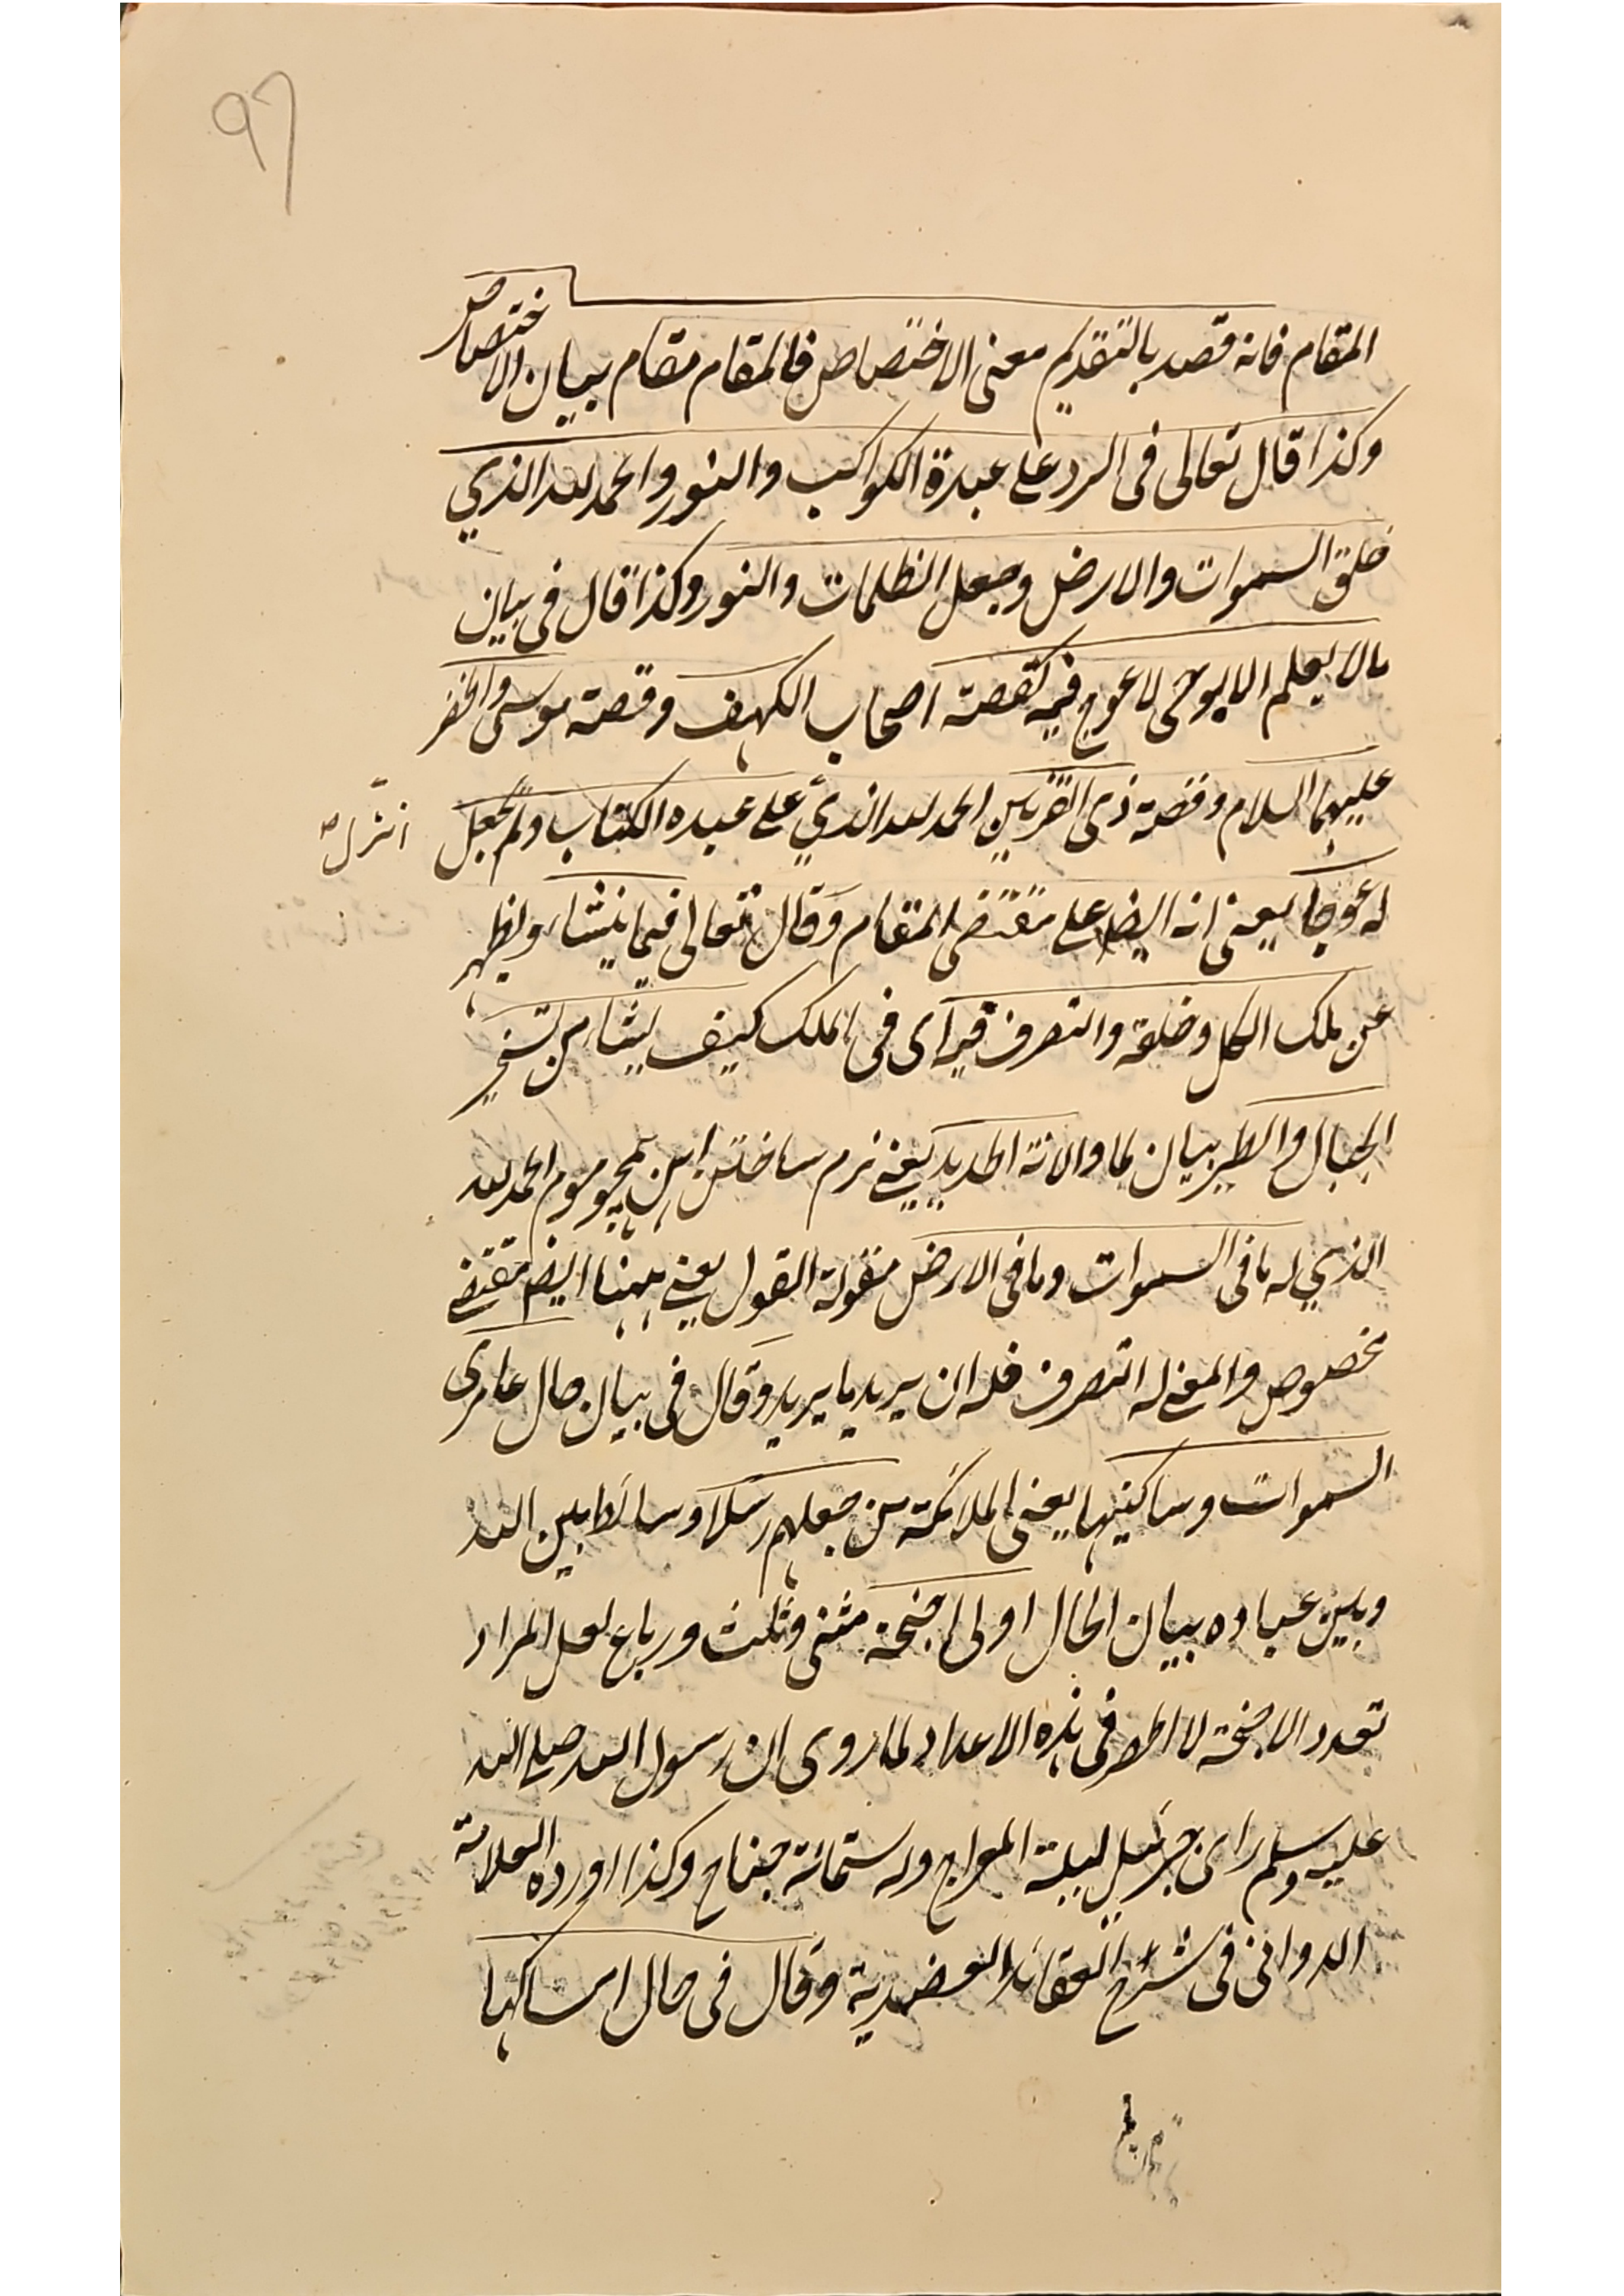 ٩٦
المقام فانه قصد بالتقديم معنى الاختصاص فالمقام مقام بيان الاختصاص
وكذا قال تعالى فى الرد على عبدة الكواكب والنور والحمد لله الذي
خلق السموات والارض وجعل الظلمات والنور وكذا قال فى بيان
مالا يعلم الا بالوحى لا عوج فيه كقصة اصحاب الكهف وقصة موسى والخضر
عليهما السلام وقصة ذى القرنين الحمد لله الذي على عبده الكتاب ولم يجعل
انزل
له عوجا يعنى انه ايضا على مقتضى المقام وقال تعالى فيما ينشاء ويظهر
عن ملك الكل وخلقه والتصرف فيه اى فى الملك كيف يشاء من تسخير
الجبال والطير بيان لما والانة الحديد يعنى نرم ساختن اهن همچو موم الحمد لله
الذي له ما فى السموات وما فى الارض مقولة القول يعنى ههنا ايضا مقتضى
مخصوص والمعنى له التصرف فله ان يريد ما يريد وقال فى بيان حال عامرى
السموات وساكنيها يعنى الملائكة من جعلهم رسلا وسائط بين الله
وبين عباده بيان الحال اولى اجنحة مثنى وثلث ورباع لعل المراد
تعدد الاجنحة لا الحصر فى هذه الاعداد لما روى ان رسول الله صلى الله
عليه وسلم راى جبرئيل ليلة المعراج وله ستمائة جناح وكذا اورده العلامة
الدوانى فى شرح العقائد العضدية وقال فى حال امساكها